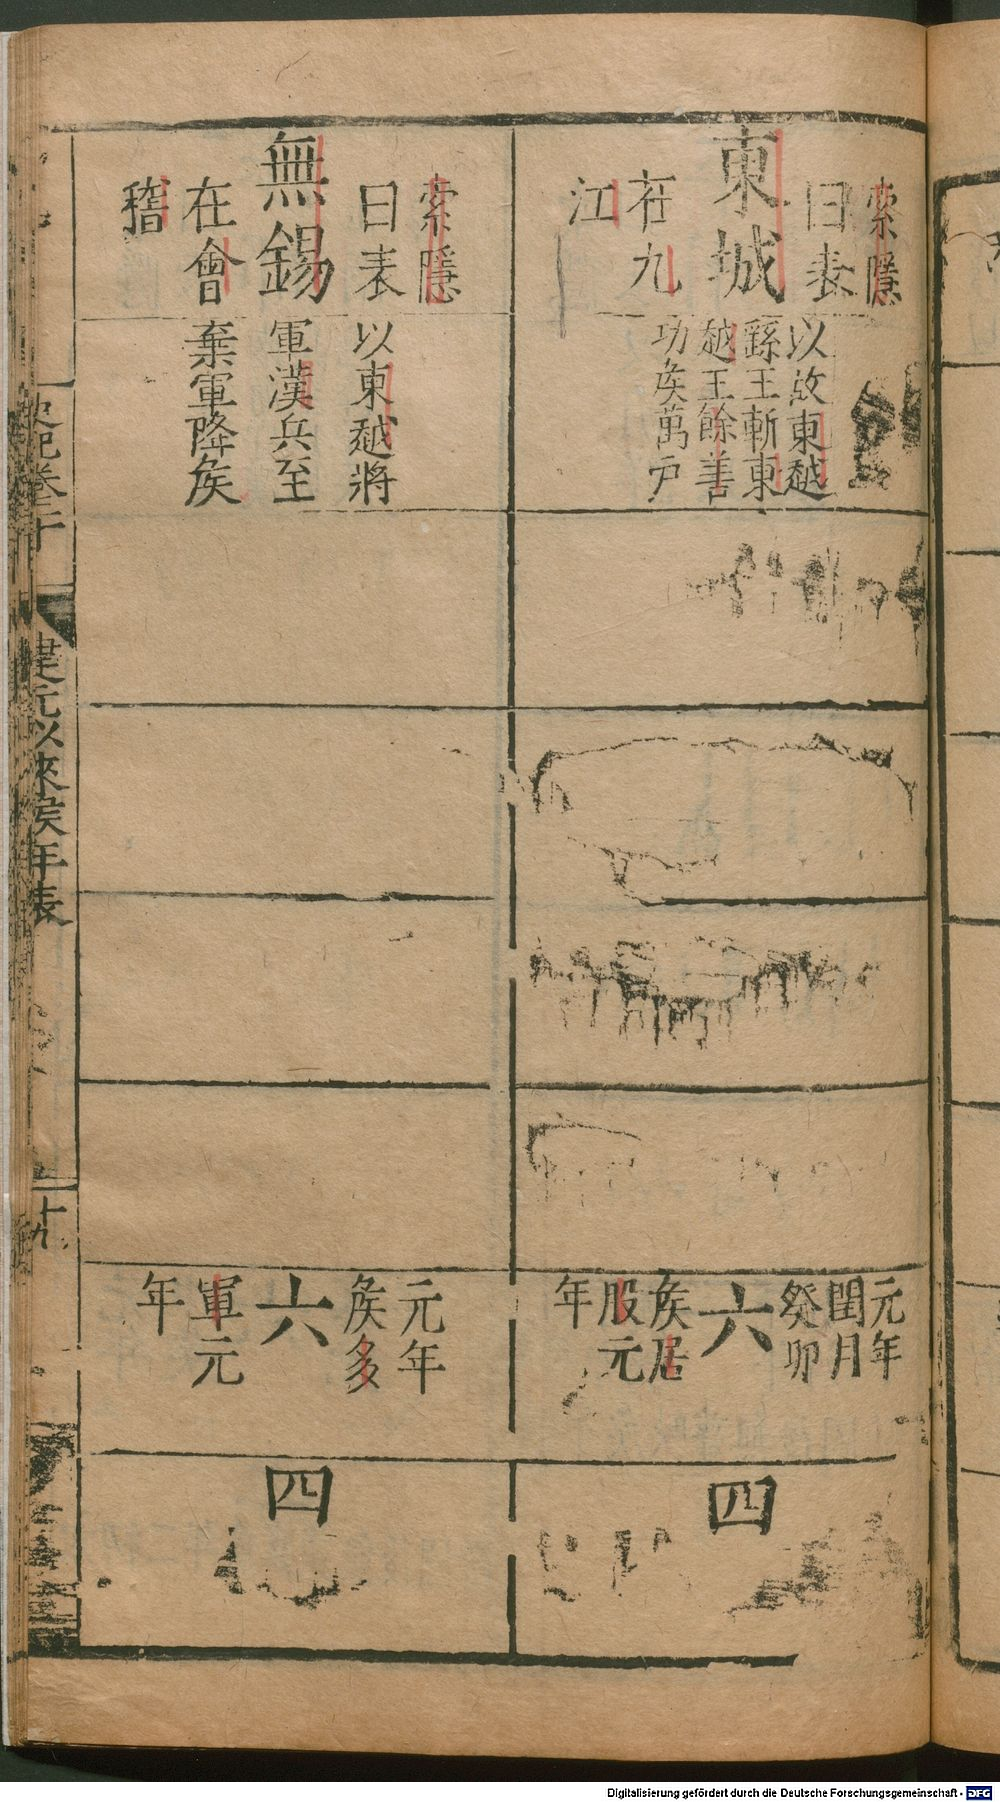 索隱
曰表
東城
在九
江
以故東越
繇王斬東
越王餘善
功矦萬戶
元年
閏月
癸卯
六
矦居
股元
年
四
索隱
曰表
無錫
在會
稽
以東越將
軍漢兵至
棄軍降矦
元年
矦多
六
軍元
年
四
史記卷二十
建元以來矦年表
十九
Digitalisierung gefördert durch die Deutsche Forschungsgemeinschaft - DFG